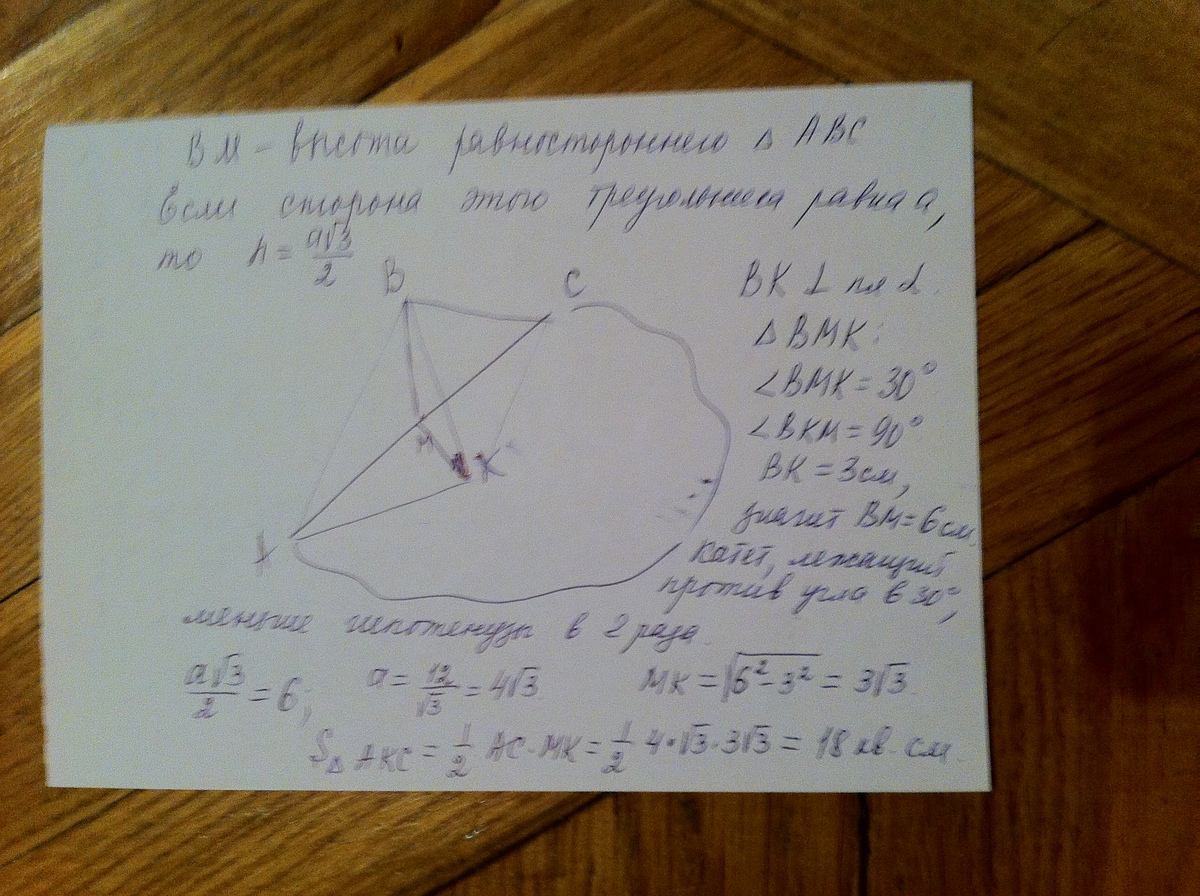 ВМ – высота равностороннего Δ АВС
Если сторона этого треугольника равна а,
то h = a√3/2
В
С
М
К
А
ВК ⊥ пл α.
Δ ВМК:
∠ВМК = 30°
∠ВКМ = 90°
ВК = 3см,
значит ВМ = 6 см.
Катет, лежащий
против угла в 30°,
меньше гипотенузы в 2 раза.
a√3/2 = 6; a = 12/√3 = 4√3 МК = √6² – 3² = 3√3.
S Δ АКС = 1/2 АС · МК = 1/2 4 · √3 · 3√3 = 18 кв. см.